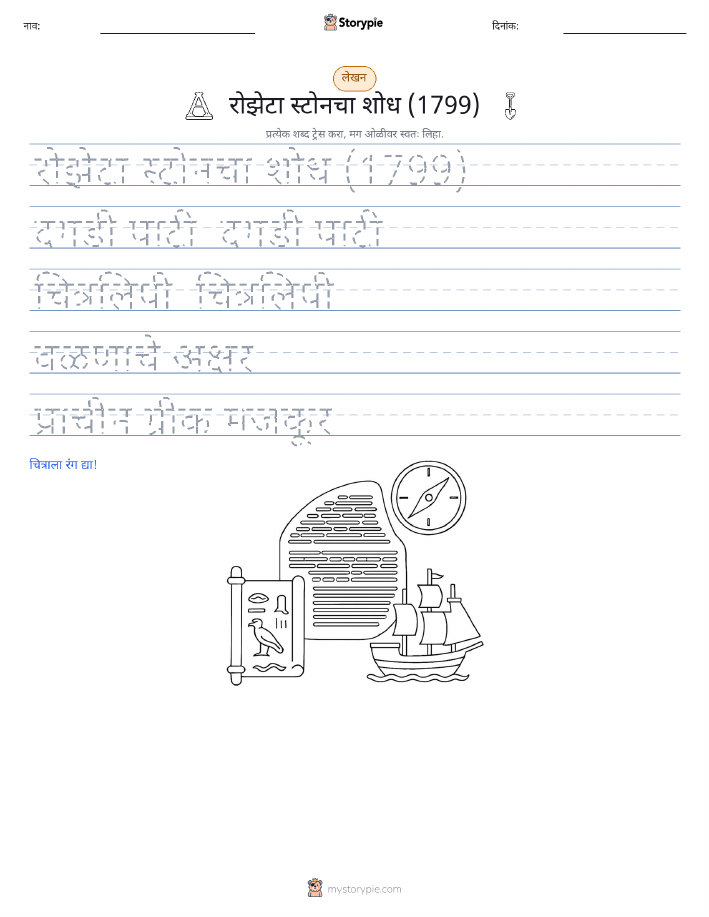 नाव:
Storypie
दिनांक:
लेखन
रोझेटा स्टोनचा शोध (1799)
प्रत्येक शब्द ट्रेस करा, मग ओळीवर स्वतः लिहा.
रोझेटा स्टोनचा शोध (1799)
दगडी पाटी दगडी पाटी
चित्रलिपी चित्रलिपी
वळणाचे अक्षर
प्राचीन ग्रीक मजकूर
चित्राला रंग द्या!
mystorypie.com